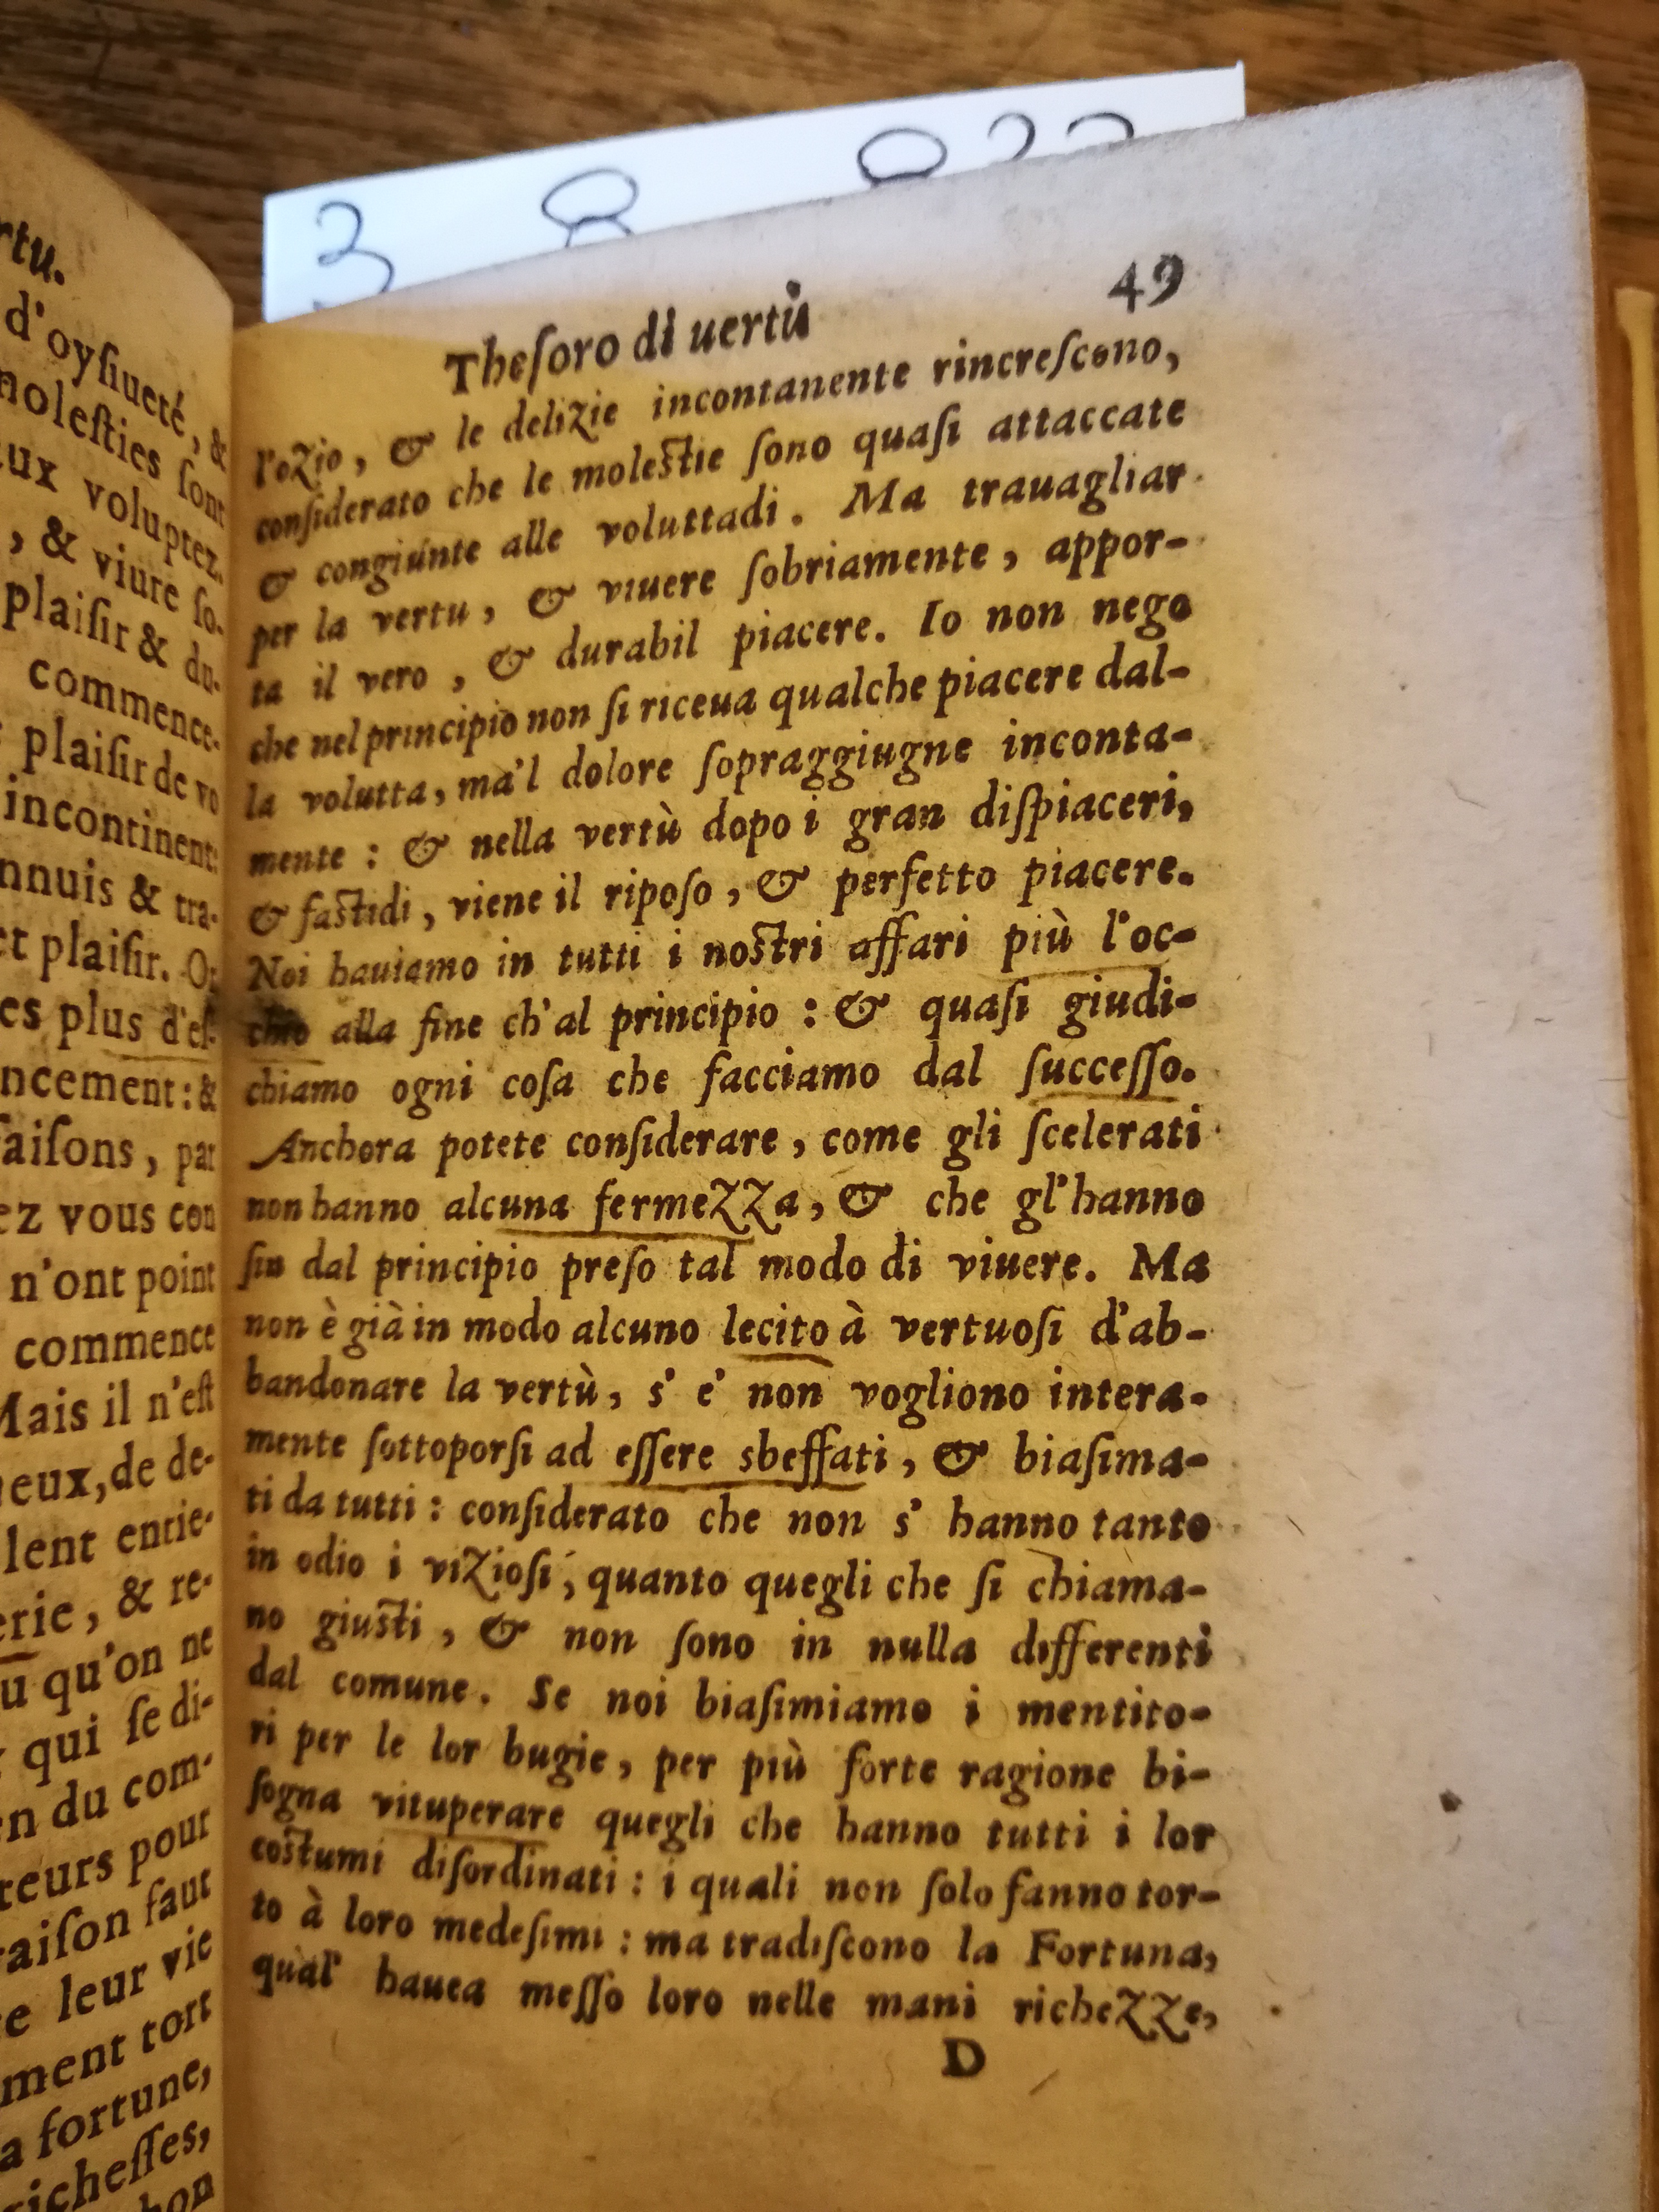 rtu.
d'oyſiueté, &
moleſties ſont
ux voluptez.
, & viure ſo-
plaiſir & du-
commence-
plaiſir de vo
incontinent:
nnuis & tra-
et plaiſir. Or
es plus d'eſ-
ncement: &
faiſons, par
ez vous con
n'ont point
commence
Mais il n'eſt
eux, de de-
lent entie-
erie, & re-
u qu'on ne
qui ſe di-
en du com-
teurs pour
raiſon faut
e leur vie
ment tort
a fortune,
richeſſes,
bon
3 8
Theſoro di uertù 49
l'ozio, & le delizie incontanente rincreſcono,
conſiderato che le moleſtie ſono quaſi attaccate
& congiunte alle voluttadi. Ma trauagliar
per la vertu, & viuere ſobriamente, appor-
ta il vero, & durabil piacere. Io non nego
che nel principio non ſi riceua qualche piacere dal-
la volutta, ma'l dolore ſopraggiugne inconta-
mente: & nella vertù dopo i gran diſpiaceri,
& faſtidi, viene il ripoſo, & perfetto piacere.
Noi hauiamo in tutti i noſtri affari più l'oc-
chio alla fine ch'al principio: & quaſi giudi-
chiamo ogni coſa che facciamo dal ſucceſſo.
Anchora potete conſiderare, come gli ſcelerati
non hanno alcuna fermezza, & che gl'hanno
ſin dal principio preſo tal modo di viuere. Ma
non è già in modo alcuno lecito à vertuoſi d'ab-
bandonare la vertù, s' e' non vogliono intera-
mente ſottoporſi ad eſſere sbeffati, & biaſima-
ti da tutti: conſiderato che non s' hanno tanto
in odio i vizioſi, quanto quegli che ſi chiama-
no giuſti, & non ſono in nulla differenti
dal comune. Se noi biaſimiamo i mentito-
ri per le lor bugie, per più forte ragione bi-
ſogna vituperare quegli che hanno tutti i lor
coſtumi diſordinati: i quali non ſolo fanno tor-
to à loro medeſimi: ma tradiſcono la Fortuna,
qual' hauea meſſo loro nelle mani richezze,
D